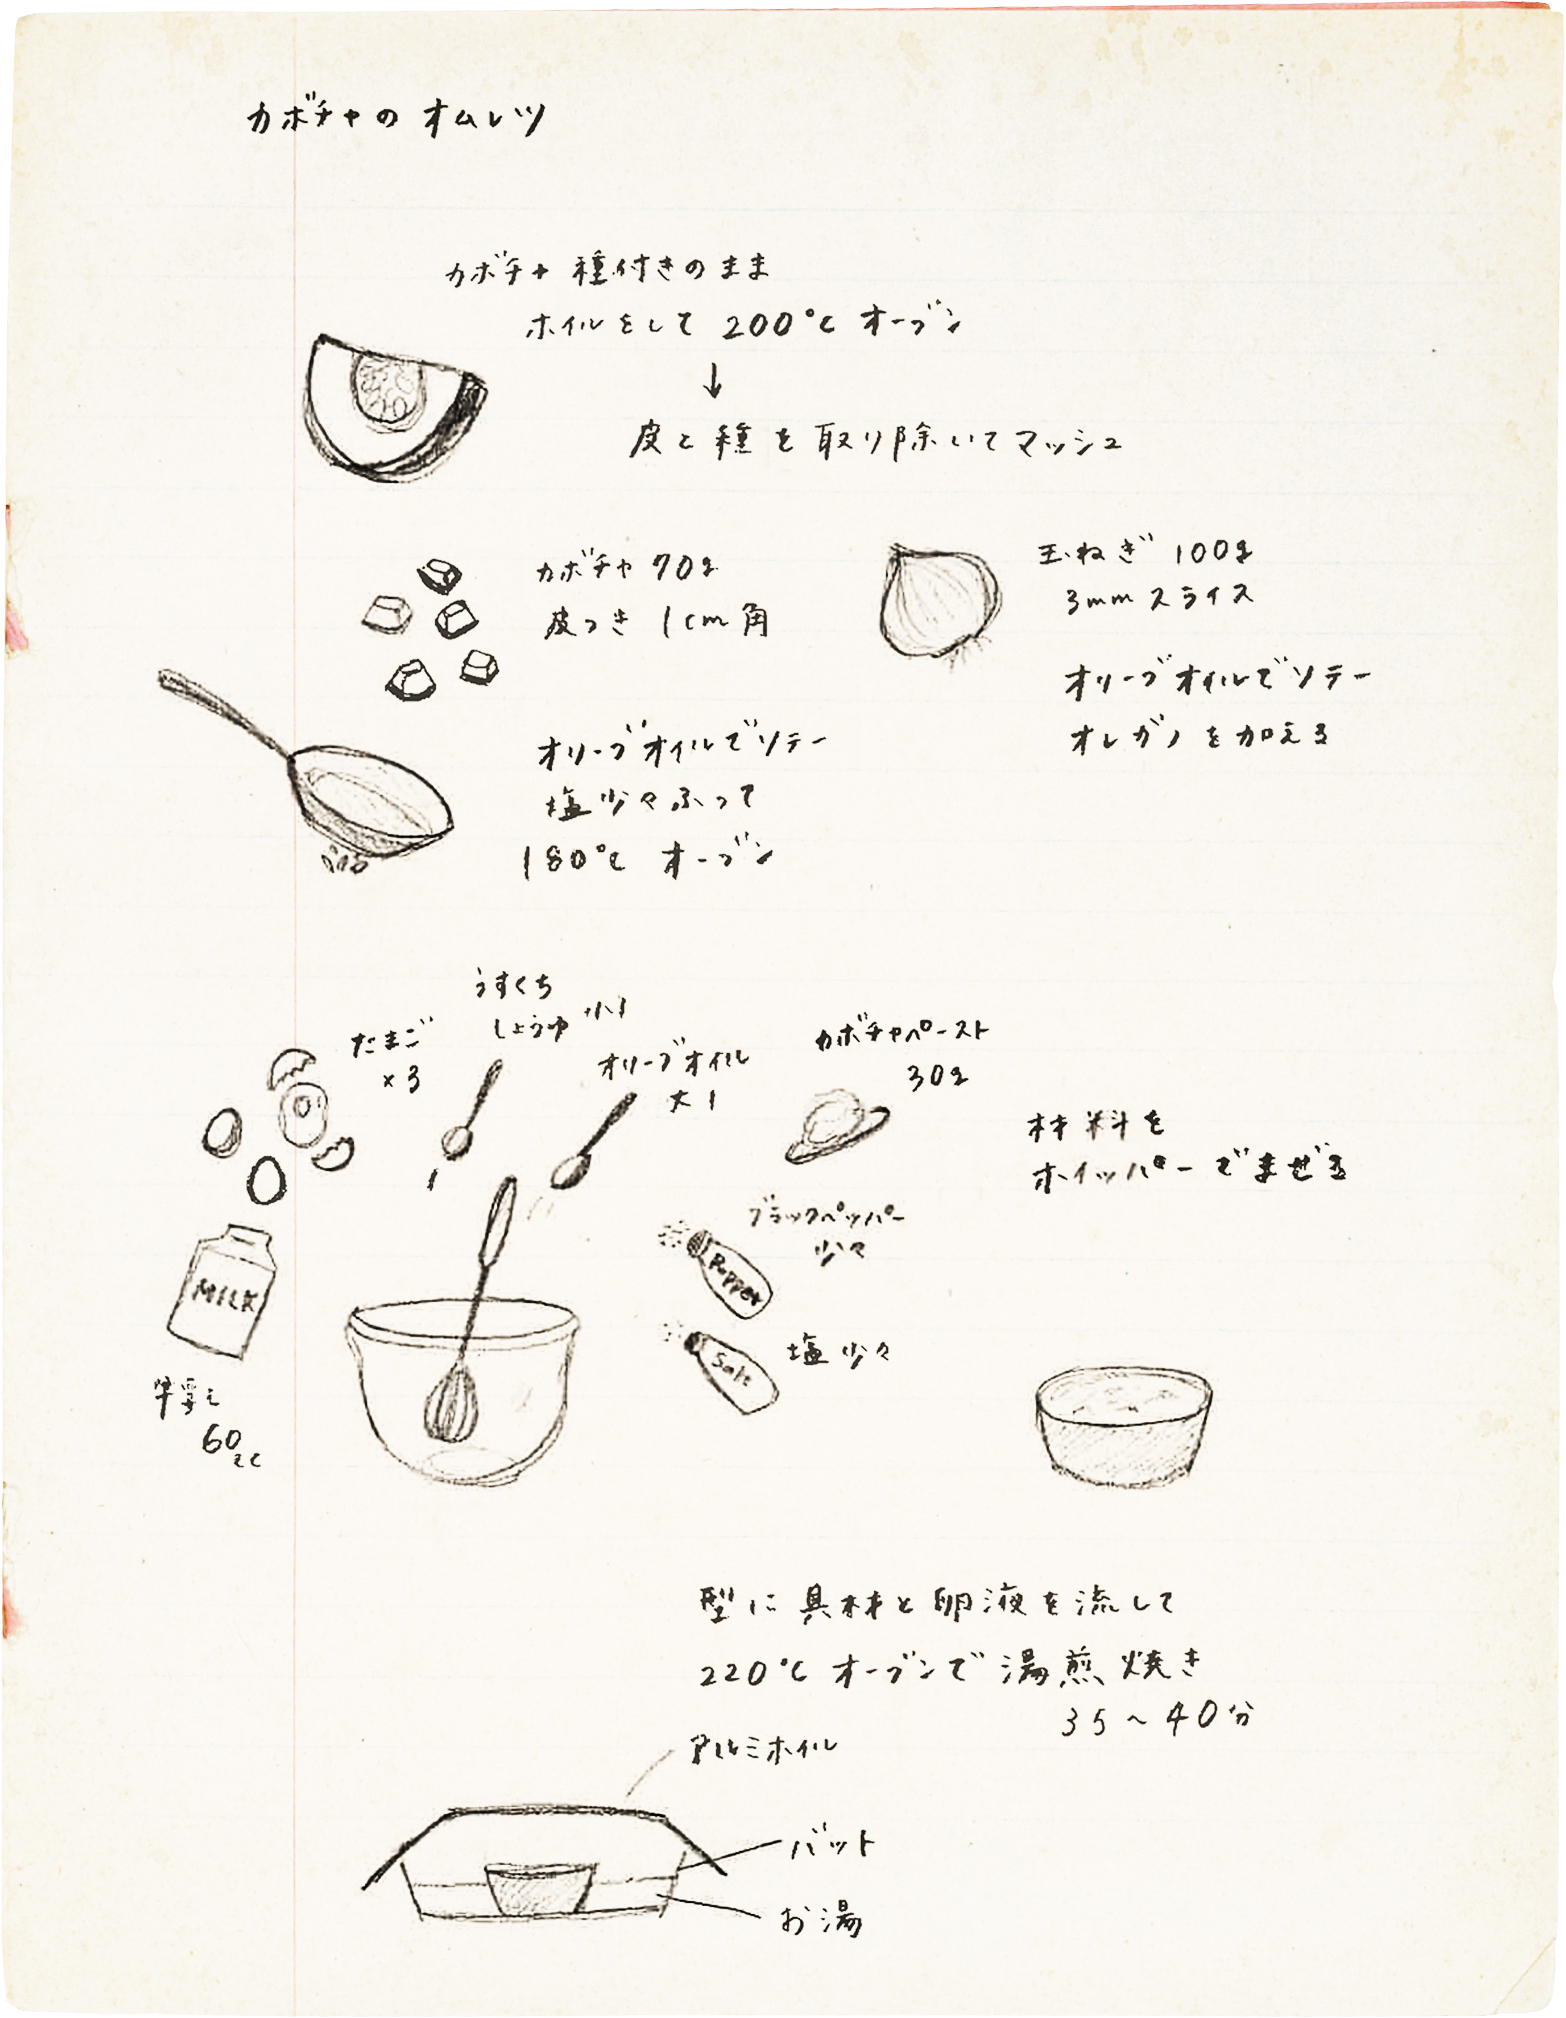 カボチャのオムレツ
カボチャ 種付きのまま
ホイルをして 200℃ オーブン
↓
皮と種を取り除いてマッシュ
カボチャ 70g
皮つき 1cm角
オリーブオイルでソテー
塩少々ふって
180℃ オーブン
玉ねぎ 100g
3mmスライス
オリーブオイルでソテー
オレガノを加える
たまご
×3
うすくち
しょうゆ 小1
オリーブオイル
大1
カボチャペースト
30g
材料を
ホイッパーでまぜる
ブラックペッパー
少々
Pepper
塩少々
Salt
MILK
牛乳
60cc
型に具材と卵液を流して
220℃ オーブンで湯煎焼き
35〜40分
アルミホイル
バット
お湯